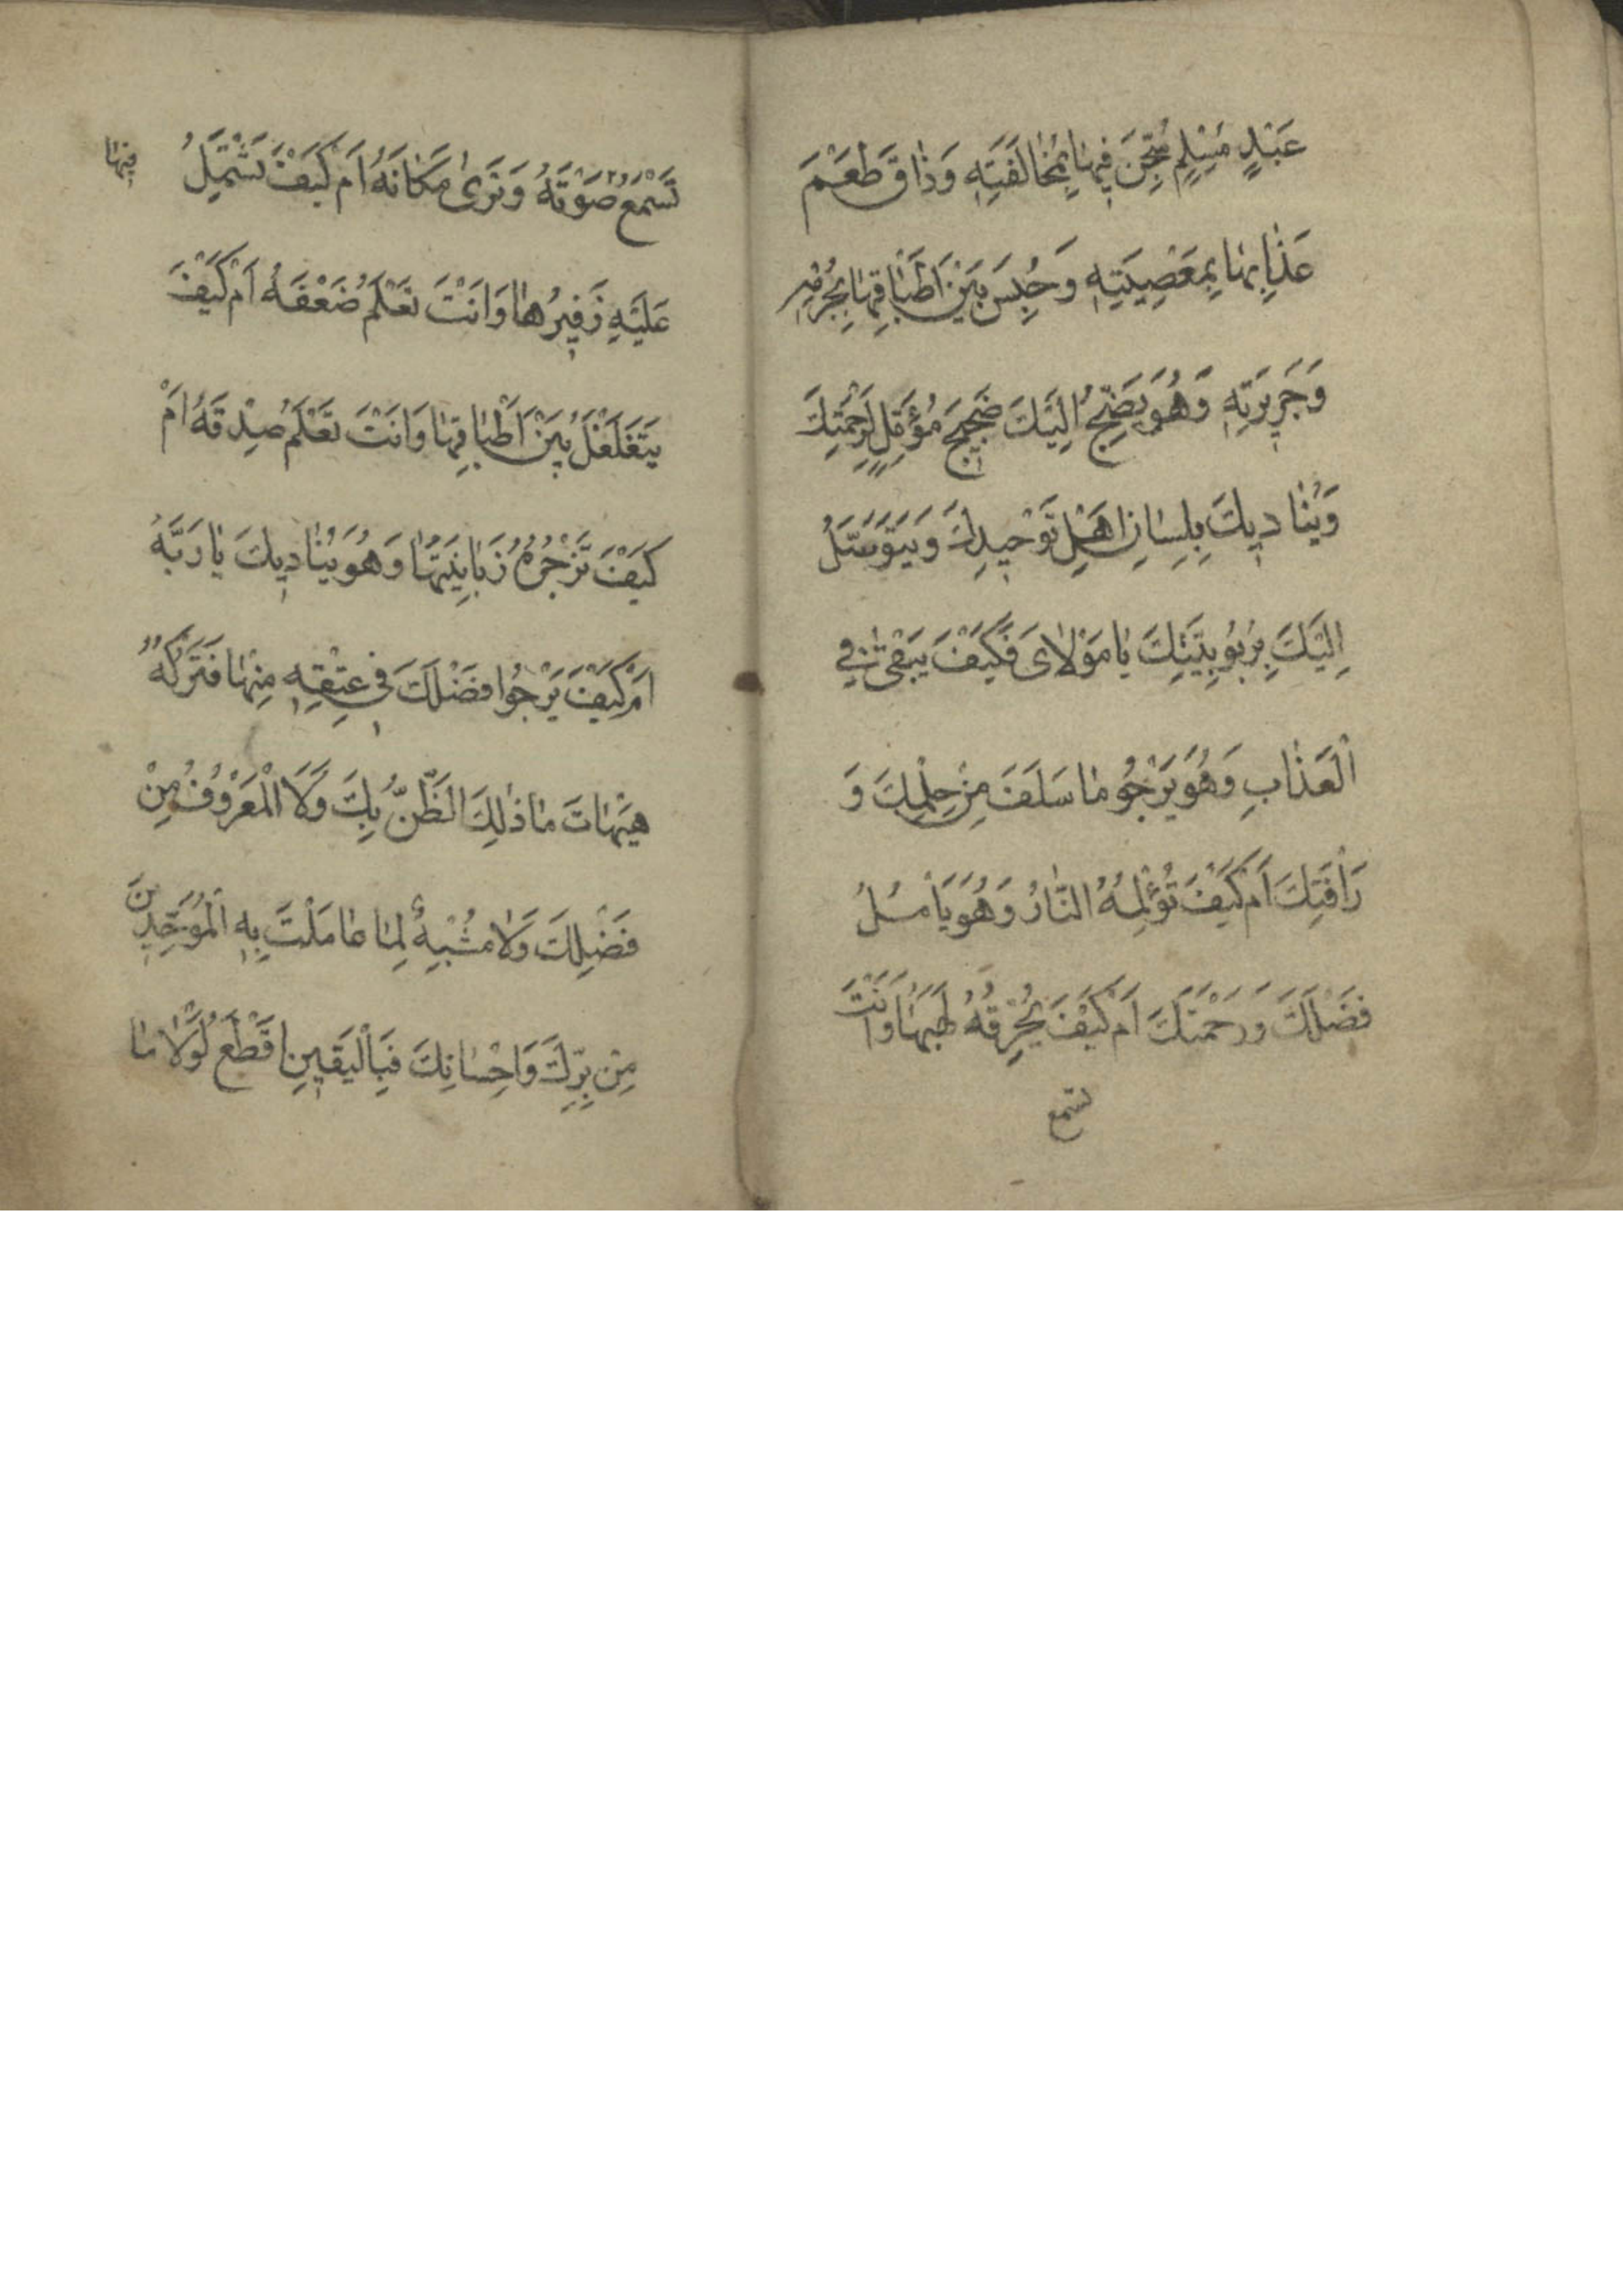 عَبْدٍ مُسْلِمٍ سُجِنَ فِيهَا بِمُخَالَفَتِهِ وَذَاقَ طَعْمَ
عَذَابِهَا بِمَعْصِيَتِهِ وَحُبِسَ بَيْنَ أَطْبَاقِهَا بِجُرْمِهِ
وَجَرِيرَتِهِ وَهُوَ يَضِجُّ اِلَيْكَ ضَجِيجَ مُؤَمِّلٍ لِرَحْمَتِكَ
وَيُنَادِيكَ بِلِسَانِ اَهْلِ تَوْحِيدِكَ وَيَتَوَسَّلُ
اِلَيْكَ بِرُبُوبِيَّتِكَ يَا مَوْلَاىَ فَكَيْفَ يَبْقَىٰ فِي
الْعَذَابِ وَهُوَ يَرْجُو مَا سَلَفَ مِنْ حِلْمِكَ وَ
رَأْفَتِكَ اَمْ كَيْفَ تُؤْلِمُهُ النَّارُ وَهُوَ يَأْمُلُ
فَضْلَكَ وَرَحْمَتَكَ اَمْ كَيْفَ يُحْرِقُهُ لَهَبُهَا وَاَنْتَ
تسمع
تَسْمَعُ صَوْتَهُ وَتَرَىٰ مَكَانَهُ اَمْ كَيْفَ تَشْتَمِلُ
فيها
عَلَيْهِ زَفِيرُهَا وَاَنْتَ تَعْلَمُ ضَعْفَهُ اَمْ كَيْفَ
يَتَغَلْغَلُ بَيْنَ اَطْبَاقِهَا وَاَنْتَ تَعْلَمُ صِدْقَهُ اَمْ
كَيْفَ تَزْجُرُهُ زَبَانِيَتُهَا وَهُوَ يُنَادِيكَ يَا رَبَّهُ
اَمْ كَيْفَ يَرْجُوا فَضْلَكَ فِي عِتْقِهِ مِنْهَا فَتَتْرُكُهُ
هَيْهَاتَ مَا ذٰلِكَ الظَّنُّ بِكَ وَلَا الْمَعْرُوفُ مِنْ
فَضْلِكَ وَلَا مُشْبِهٌ لِمَا عَامَلْتَ بِهِ الْمُوَحِّدِينَ
مِنْ بِرِّكَ وَاِحْسَانِكَ فَبِالْيَقِينِ اَقْطَعُ لَوْلَا مَا